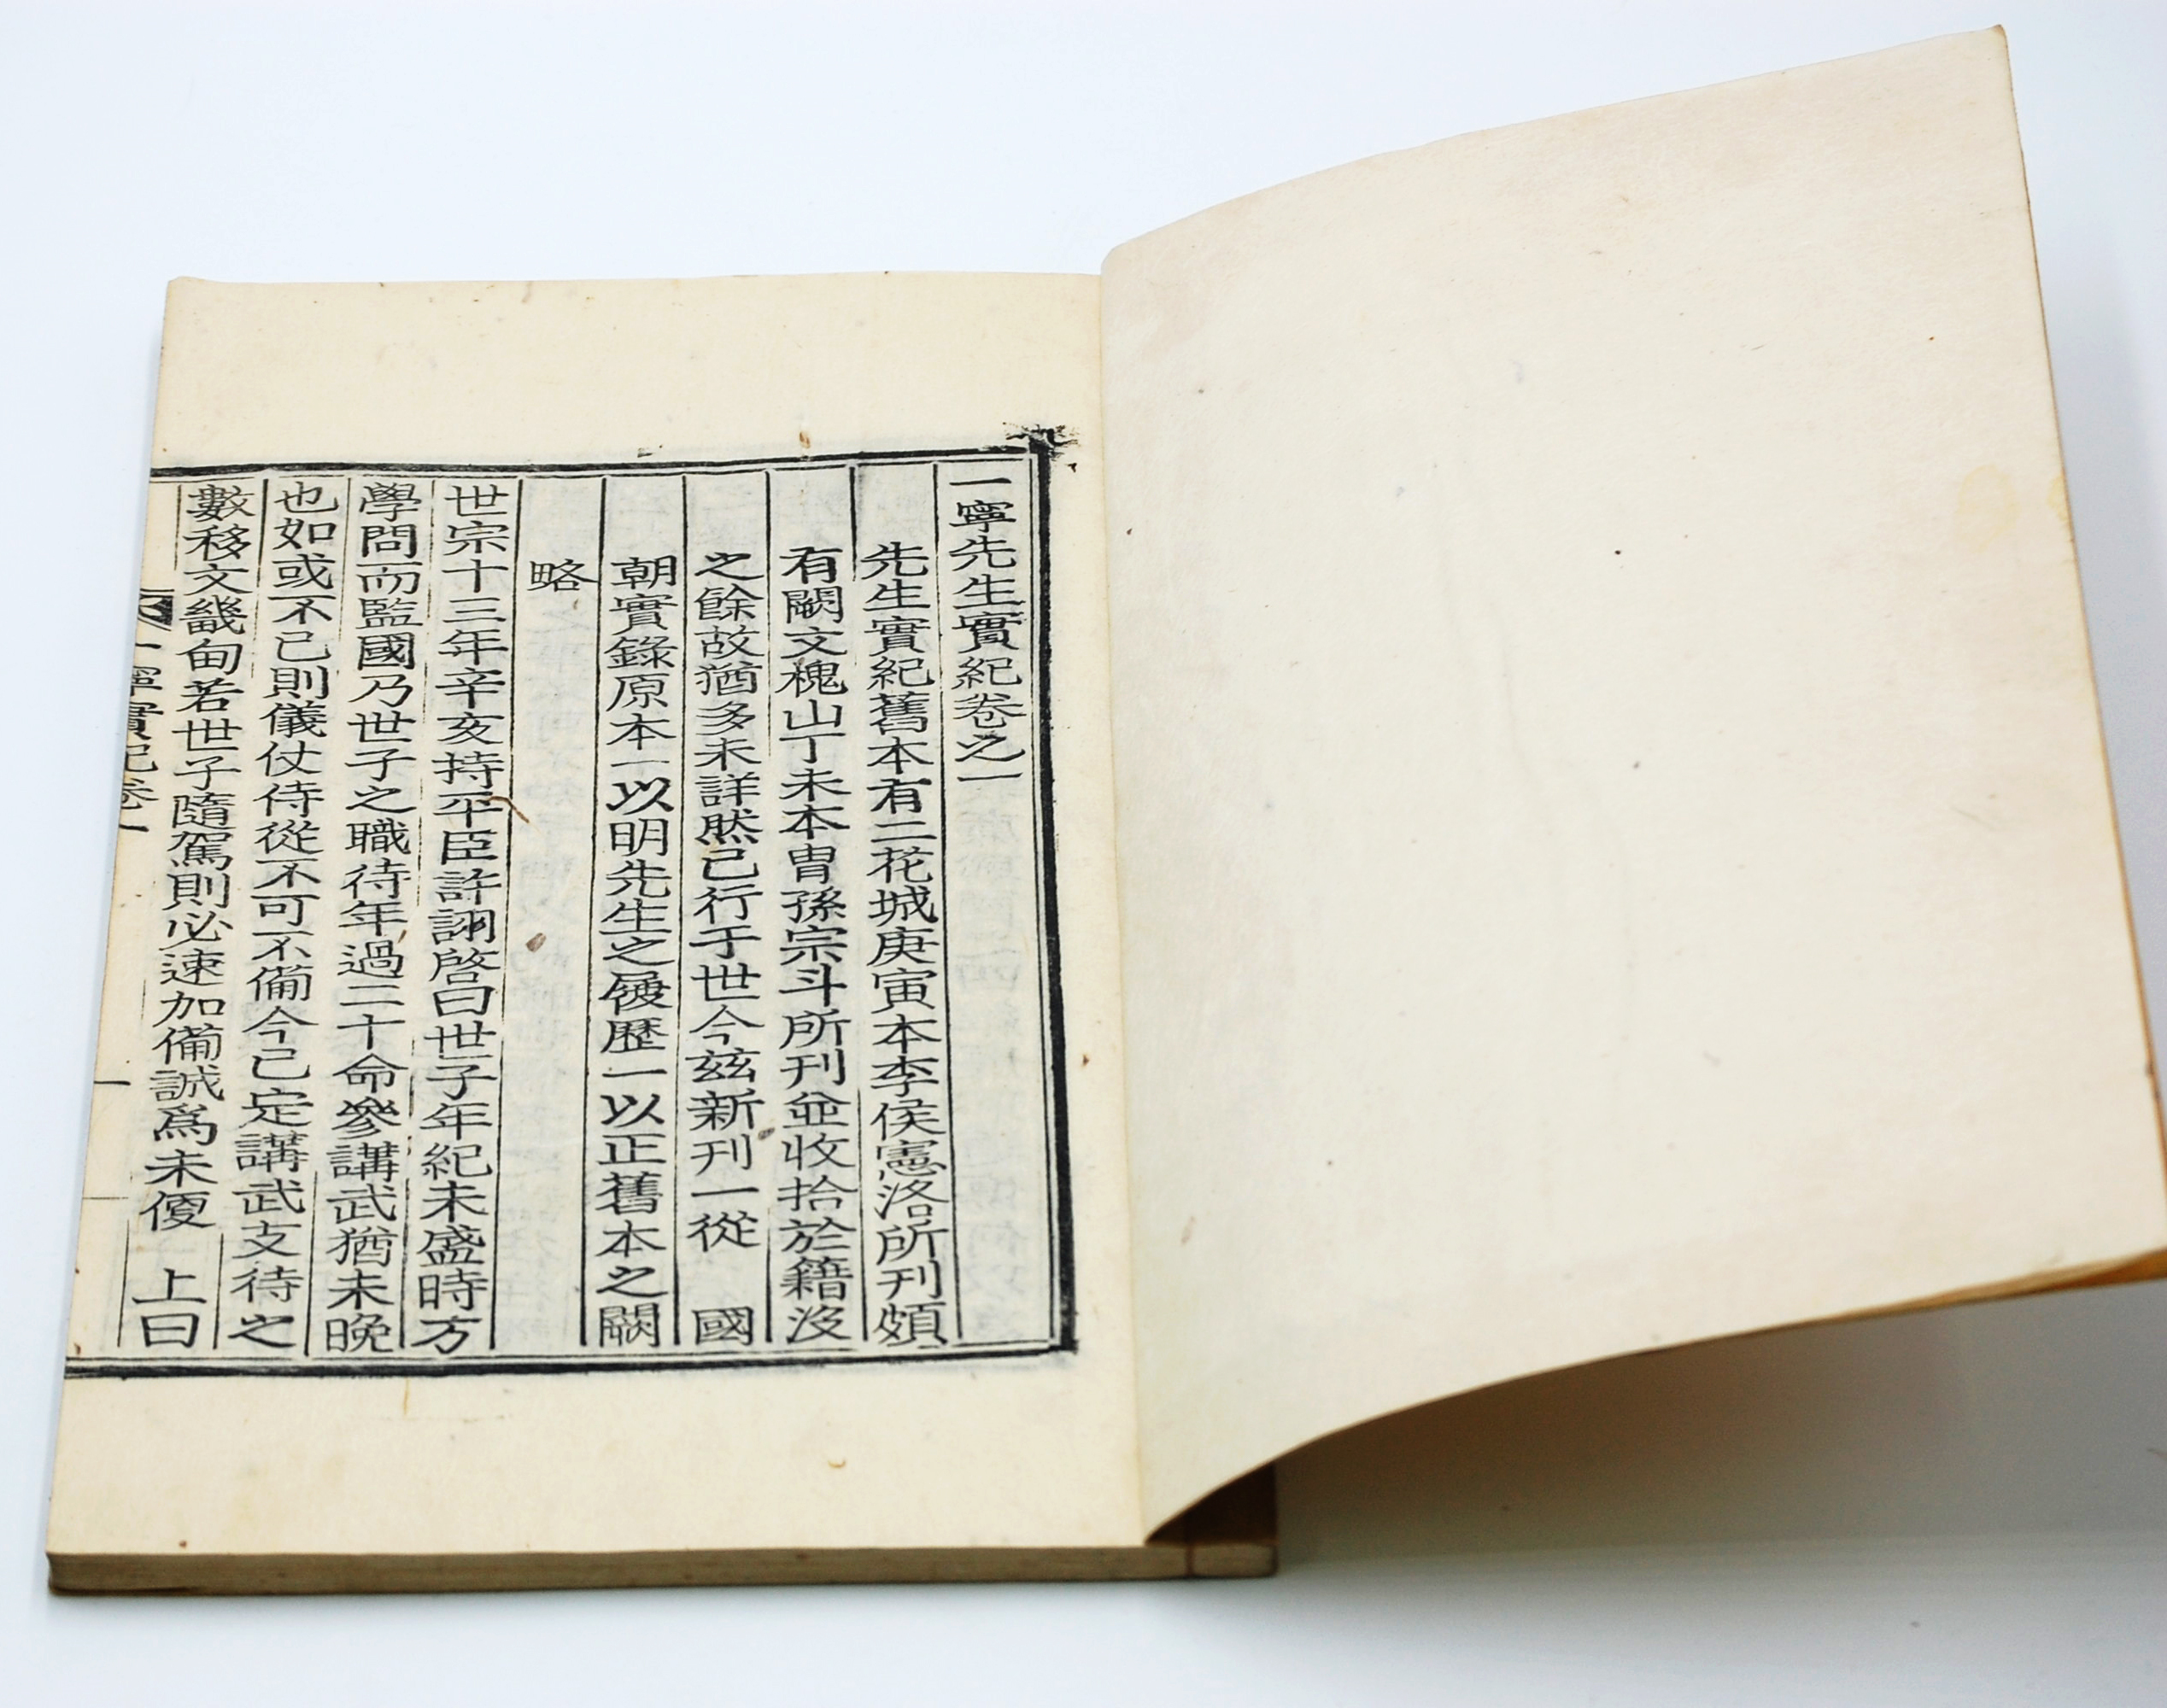 一寧先生實紀卷之一
先生實紀舊本有二花城庚寅本李侯憲洛所刊頗
有闕文槐山丁未本胄孫宗斗所刊並收拾於籍沒
之餘故猶多未詳然已行于世今玆新刊一從　國
朝實錄原本一以明先生之履歷一以正舊本之闕
略
世宗十三年辛亥持平臣許詡啓曰世子年紀未盛時方
學問而監國乃世子之職待年過二十命參講武猶未晩
也如或不已則儀仗侍從不可不備今已定講武支待之
數移文畿甸若世子隨駕則必速加備誠爲未便　上曰
一寧實紀卷一
一